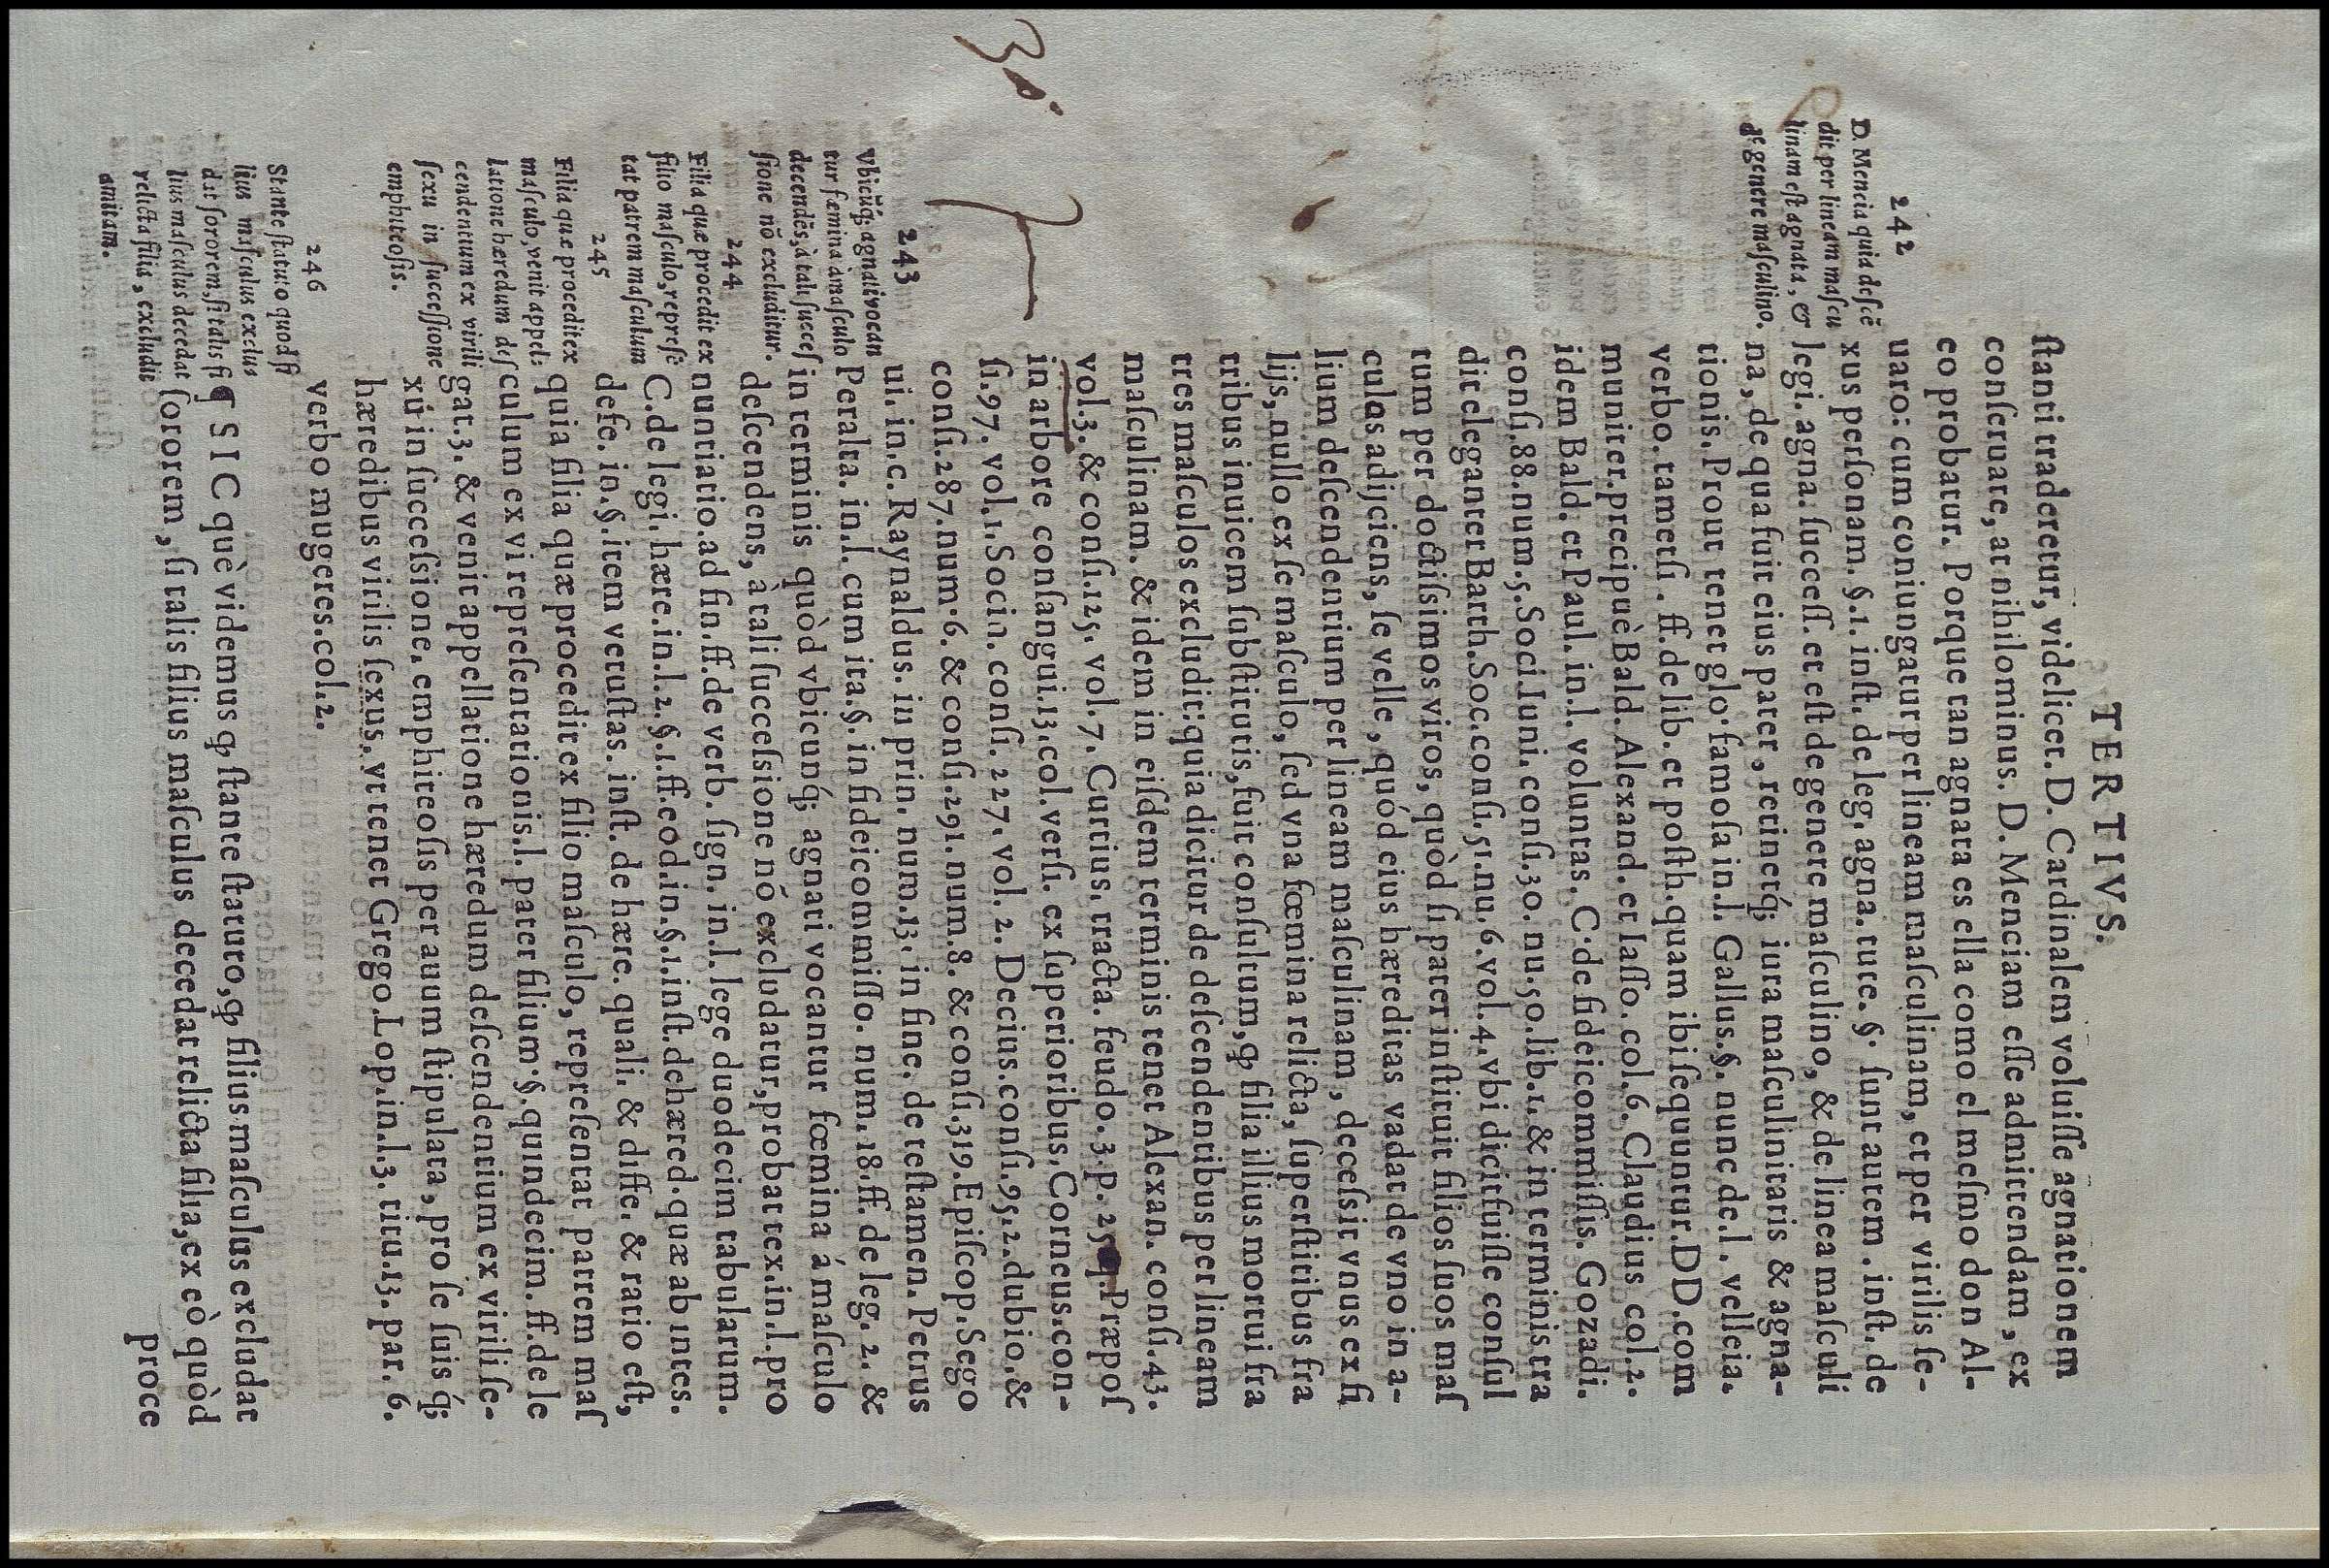 TERTIVS.
ſtanti traderetur, videlicet. D. Cardinalem voluiſſe agnationem
conſeruare, at nihilominus. D. Menciam eſſe admittendam, ex
eo probatur. Porque tan agnata es ella como el meſmo don Al-
uaro: cum coniungatur per lineam maſculinam, et per virilis ſe-
xus perſonam. §.1. inſt. de leg. agna. tute. §. ſunt autem. inſt. de
legi. agna. ſucceſſ. et eſt de genere maſculino, & de linea maſculi
na, de qua fuit eius pater, retinetq́; iura maſculinitatis & agna-
tionis. Prout tenet glo. famoſa in. l. Gallus. §. nunc de. l. velleia.
verbo. tametſi. ff. de lib. et poſth. quam ibi ſequuntur. DD. com
muniter. precipuè Bald. Alexand. et Iaſſo. col. 6. Claudius col. 2.
idem Bald. et Paul. in. l. voluntas. C. de fideicommiſſis. Gozadi.
conſi. 88. num. 5. Soci. Iuni. conſi. 30. nu. 50. lib. 1. & in terminis tra
dit eleganter Barth. Soc. conſi. 51. nu. 6. vol. 4. vbi dicit fuiſſe conſul
tum per doctiſsimos viros, quòd ſi pater inſtituit filios ſuos maſ
culos adijciens, ſe velle, quód eius hæreditas vadat de vno in a-
lium deſcendentium per lineam maſculinam, deceſsit vnus ex fi
lijs, nullo ex ſe maſculo, ſed vna fœmina relicta, ſuperſtitibus fra
tribus inuicem ſubſtitutis, fuit conſultum, ꝙ filia illius mortui fra
tres maſculos excludit: quia dicitur de deſcendentibus per lineam
maſculinam. & idem in eiſdem terminis tenet Alexan. conſi. 43.
vol. 3. & conſi. 125. vol. 7. Curtius. tracta. feudo. 3. p. 25 q. Præpoſ
in arbore conſangui. 13. col. verſi. ex ſuperioribus. Corneus. con-
ſi. 97. vol. 1. Socin. conſi. 227. vol. 2. Decius. conſi. 95. 2. dubio. &
conſi. 287. num. 6. & conſi. 291. num. 8. & conſi. 319. Epiſcop. Sego
ui. in. c. Raynaldus. in prin. num. 13. in fine. de teſtamen. Petrus
Peralta. in. l. cum ita. §. in fideicommiſſo. num. 18. ff. de leg. 2. &
in terminis quòd vbicunq́; agnati vocantur fœmina á maſculo
deſcendens, à tali ſucceſsione nõ excludatur, probat tex. in. l. pro
nuntiatio. ad fin. ff. de verb. ſign. in. l. lege duodecim tabularum.
C. de legi. hære. in. l. 2. §. 1. ff. eod. in. §. 1. inſt. de hæred. quæ ab intes.
defe. in. §. item vetuſtas. inſt. de hære. quali. & diffe. & ratio eſt,
quia filia quæ procedit ex filio maſculo, repreſentat patrem maſ
culum ex vi repreſentationis. l. pater filium. §. quindecim. ff. de le
gat. 3. & venit appellatione hæredum deſcendentium ex virili ſe-
xu in ſucceſsione, emphiteoſis per auum ſtipulata, pro ſe ſuis q́;
hæredibus virilis ſexus. vt tenet Grego. Lop. in. l. 3. titu. 13. par. 6.
verbo mugeres. col. 2.
¶ SIC què videmus ꝙ ſtante ſtatuto, ꝙ filius maſculus excludat
ſororem, ſi talis filius maſculus decedat relicta filia, ex eò quòd
proce
242
D. Mencia quia deſcẽ
dit per lineam maſcu
linam eſt agnata, &
de genere maſculino.
243
Vbicũq́; agnati vocan
tur fœmina à maſculo
decendẽs, à tali ſucceſ
ſione nõ excluditur.
244
Filia quæ procedit ex
filio maſculo, repreſẽ
tat patrem maſculum
245
Filia quæ procedit ex
maſculo, venit appel-
latione hæredum deſ
cendentium ex virili
ſexu in ſucceſſione
emphiteoſis.
246
Stante ſtatuto quod fi
lius maſculus exclus
dat ſororem, ſi talis fi
lius maſculus decedat
relicta filia, excludit
amitam.